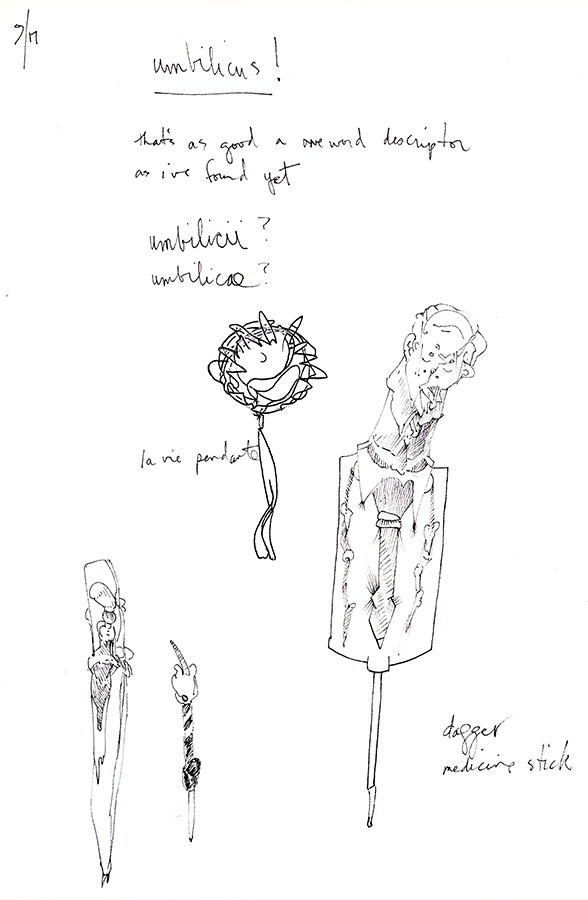 umbilicus!
that's as good a one word descriptor
as i've found yet
umbilicii?
umbilicae?
la vie pendante
dagger
medicine stick